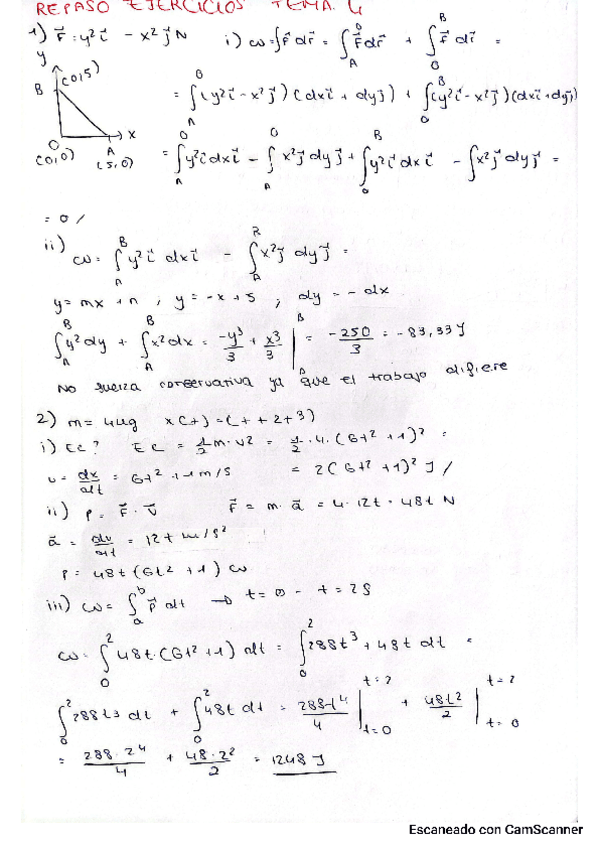 REPASO EJERCICIOS TEMA 4
1) F⃗ = y² i⃗ - x² j⃗ N   i) ω = ∫ F⃗ dr⃗ = ∫_A^O F⃗ dr⃗ + ∫_O^B F⃗ dr⃗ =
y
B (0,5)
= ∫_A^O (y² i⃗ - x² j⃗)(dx i⃗ + dy j⃗) + ∫_O^B (y² i⃗ - x² j⃗)(dx i⃗ + dy j⃗)
O A x
(0,0) (5,0)
= ∫_A^O y² i⃗ dx i⃗ - ∫_A^O x² j⃗ dy j⃗ + ∫_O^B y² i⃗ dx i⃗ - ∫ x² j⃗ dy j⃗ =
= 0 /
ii) ω = ∫_A^B y² i⃗ dx i⃗ - ∫_A^B x² j⃗ dy j⃗ =
y = mx + n , y = -x + 5 ; dy = - dx
∫_A^B y² dy + ∫_A^B x² dx = -y³/3 + x³/3 |_A^B = -250/3 = -83,33 J
No fuerza conservativa ya que el trabajo difiere
2) m = 4 kg x(t) = (t + 2t3)
i) Ec? Ec = 1/2 m · v2 = 1/2 · 4 · (6t² + 1)² =
v = dx/dt = 6t² + 1 m/s = 2(6t² + 1)² J /
ii) P = F⃗ · v⃗ F⃗ = m · a⃗ = 4 · 12t = 48t N
a⃗ = dv/dt = 12t m/s²
P = 48t (6t² + 1) ω
iii) ω = ∫_a^b P dt → t = 0 - t = 2 s
ω = ∫_0^2 48t · (6t² + 1) dt = ∫_0^2 288t³ + 48t dt =
∫_0^2 288t3 dt + ∫_0^2 48t dt = 288·t⁴/4 |_{t=0}^{t=2} + 48t²/2 |_{t=0}^{t=2}
= 288·2⁴/4 + 48·2²/2 = 1248 J
Escaneado con CamScanner